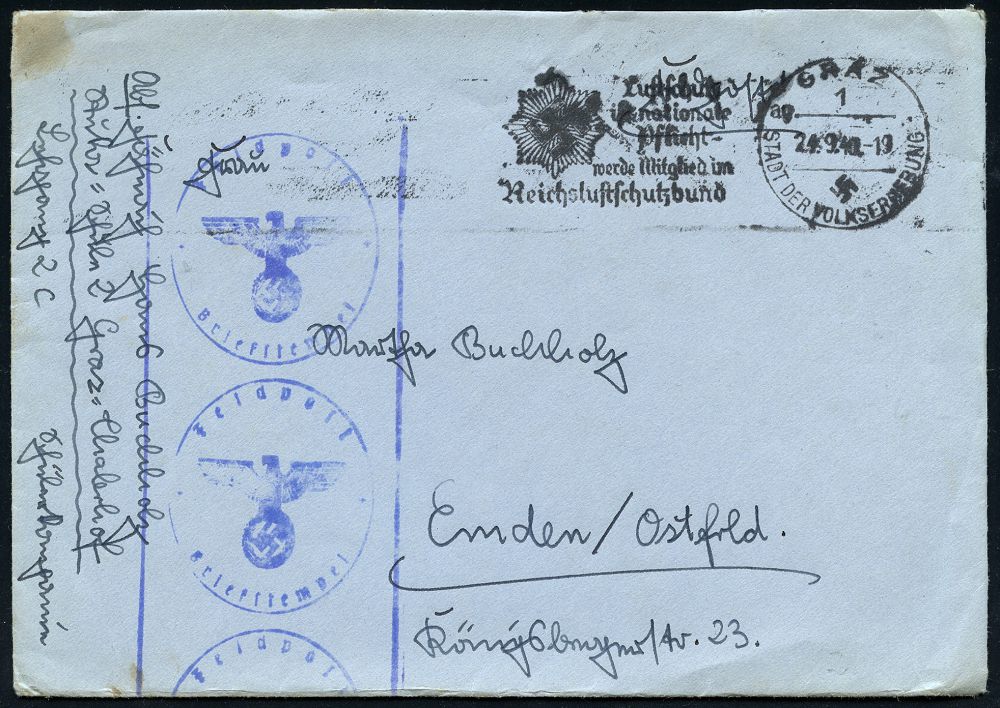 Feldpost
Luftschutz
ist nationale
Pflicht-
werde Mitglied im
Reichsluftschutzbund
GRAZ
1
24.9.40.-19
STADT DER VOLKSERHEBUNG
Frau
Martha Buchholz
Emden/Ostfrld.
Königsbergerstr. 23.
Feldpost
Briefstempel
Feldpost
Briefstempel
Feldpost
Buchholz
2 Graz-Thalerhof
2 C